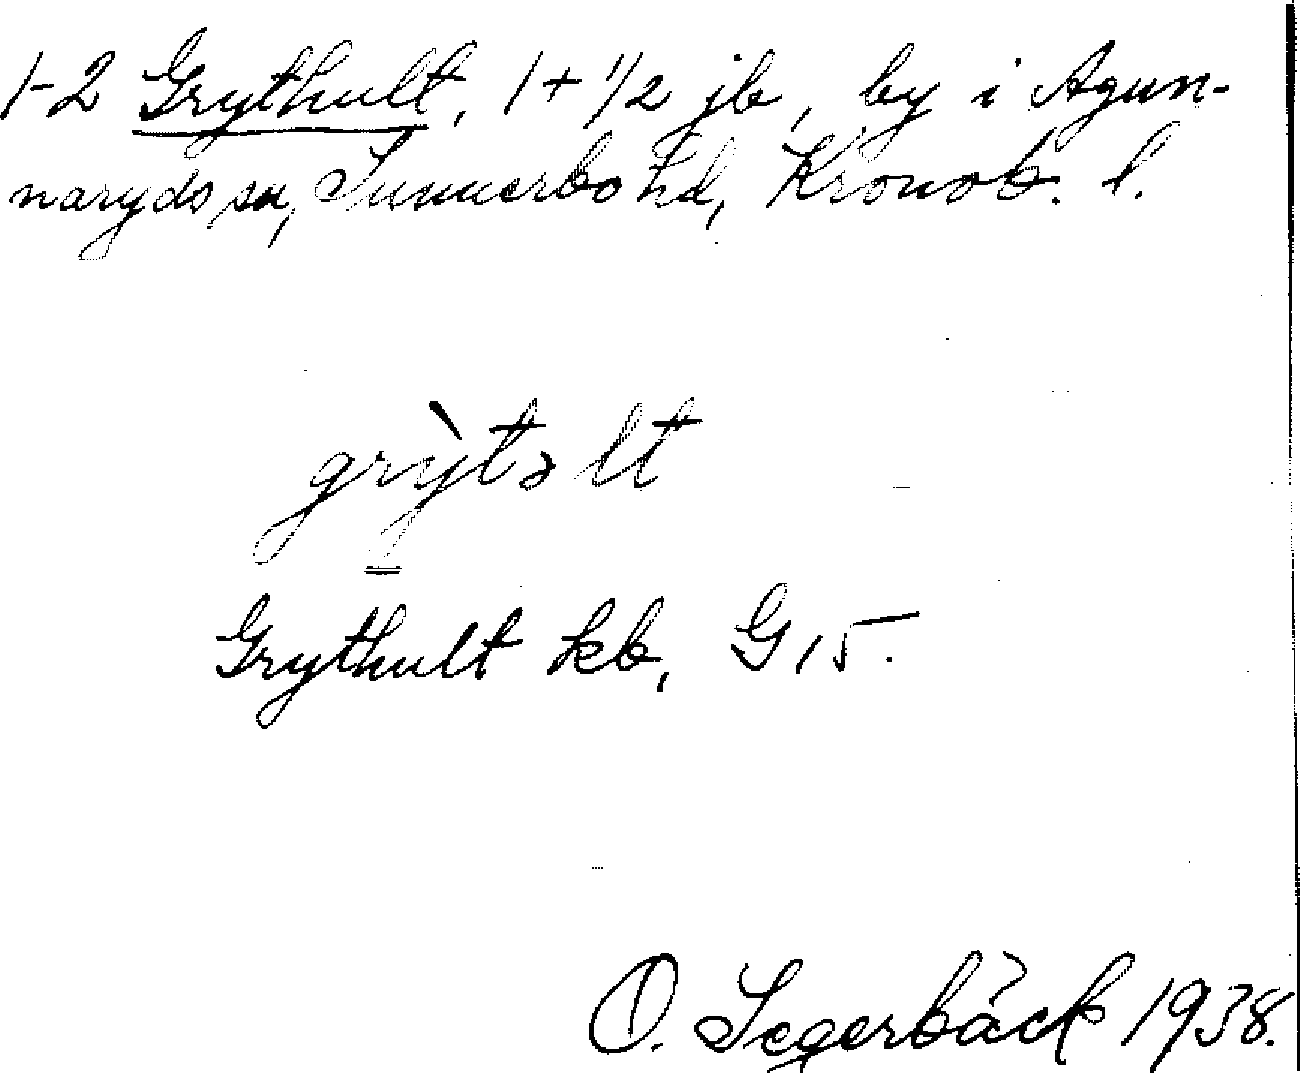 1-2 Grythult, 1+1/2 jb, by i Agun-
naryds sn, Sunnerbo hd, Kronob. l.
grỳtəlt
Grythult kb, G 15.
O. Segerbäck 1938.